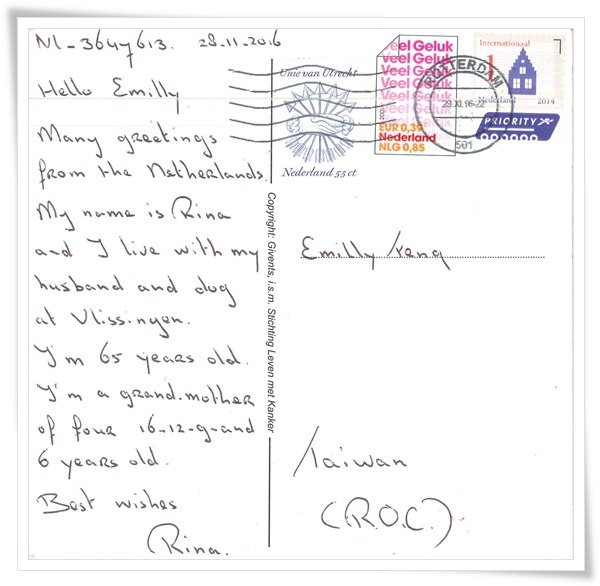 NL-3647613. 28.11.2016
Hello Emilly
Many greetings
from the Netherlands.
My name is Rina
and I live with my
husband and dog
at Vlissingen.
I'm 65 years old.
I'm a grand-mother
of four 16-12-9-and
6 years old.
Best wishes
Rina.
Unie van Utrecht
Nederland 55 ct
Veel Geluk
Veel Geluk
Veel Geluk
Veel Geluk
EUR 0,39
Nederland
NLG 0,85
ROTTERDAM
29.XI.16-22
501
Internationaal
1
Nederland 2014
PRIORITY
Copyright: Givents, i.s.m. Stichting Leven met Kanker
Emilly
Taiwan
(R.O.C.)